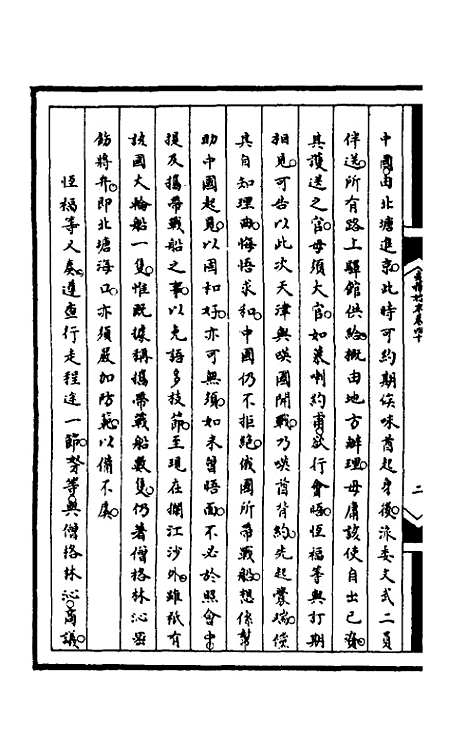 中國由北塘進京此時可約期俟味酋起身後派委文武二員
伴送所有路上驛館供給概由地方辦理毋庸該使自出己資
其護送之官毋須大官如萊喇約甫欲行會晤恆福等與打期
相見可告以此次天津與㗸國開戰乃㗸酋背約先起釁端儻
其自知理曲悔悟求和中國仍不拒絕俄國所帶戰船想係幫
助中國起見以國和好亦可無須如未曾晤面不必於照會中
提及攜帶戰船之事以免語多枝節至現在攔江沙外雖祇有
該國火輪船一隻惟既據稱攜帶戰船數隻仍著僧格林沁密
飭將弁即北塘海口亦須嚴加防範以備不虞
恆福等又奏遵查行走程途一節努等與僧格林沁商議
二